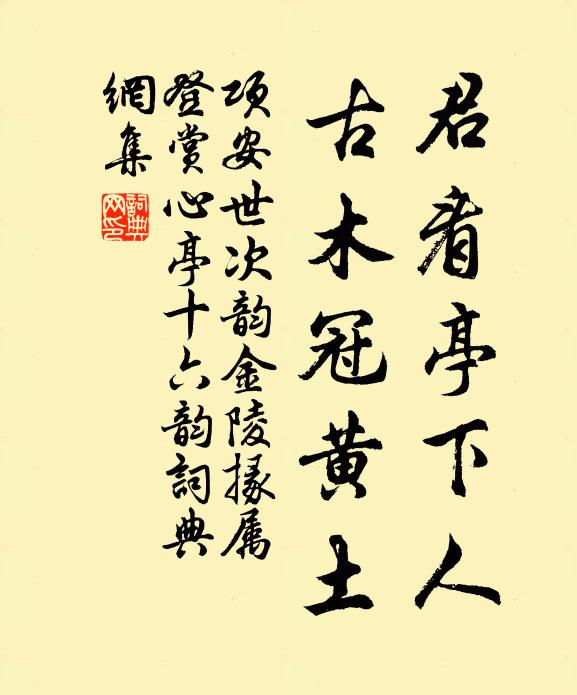 君看亭下人
古木冠黄土
项安世次韵金陵掾属
登赏心亭十六韵詞典
網集
詞典
网印